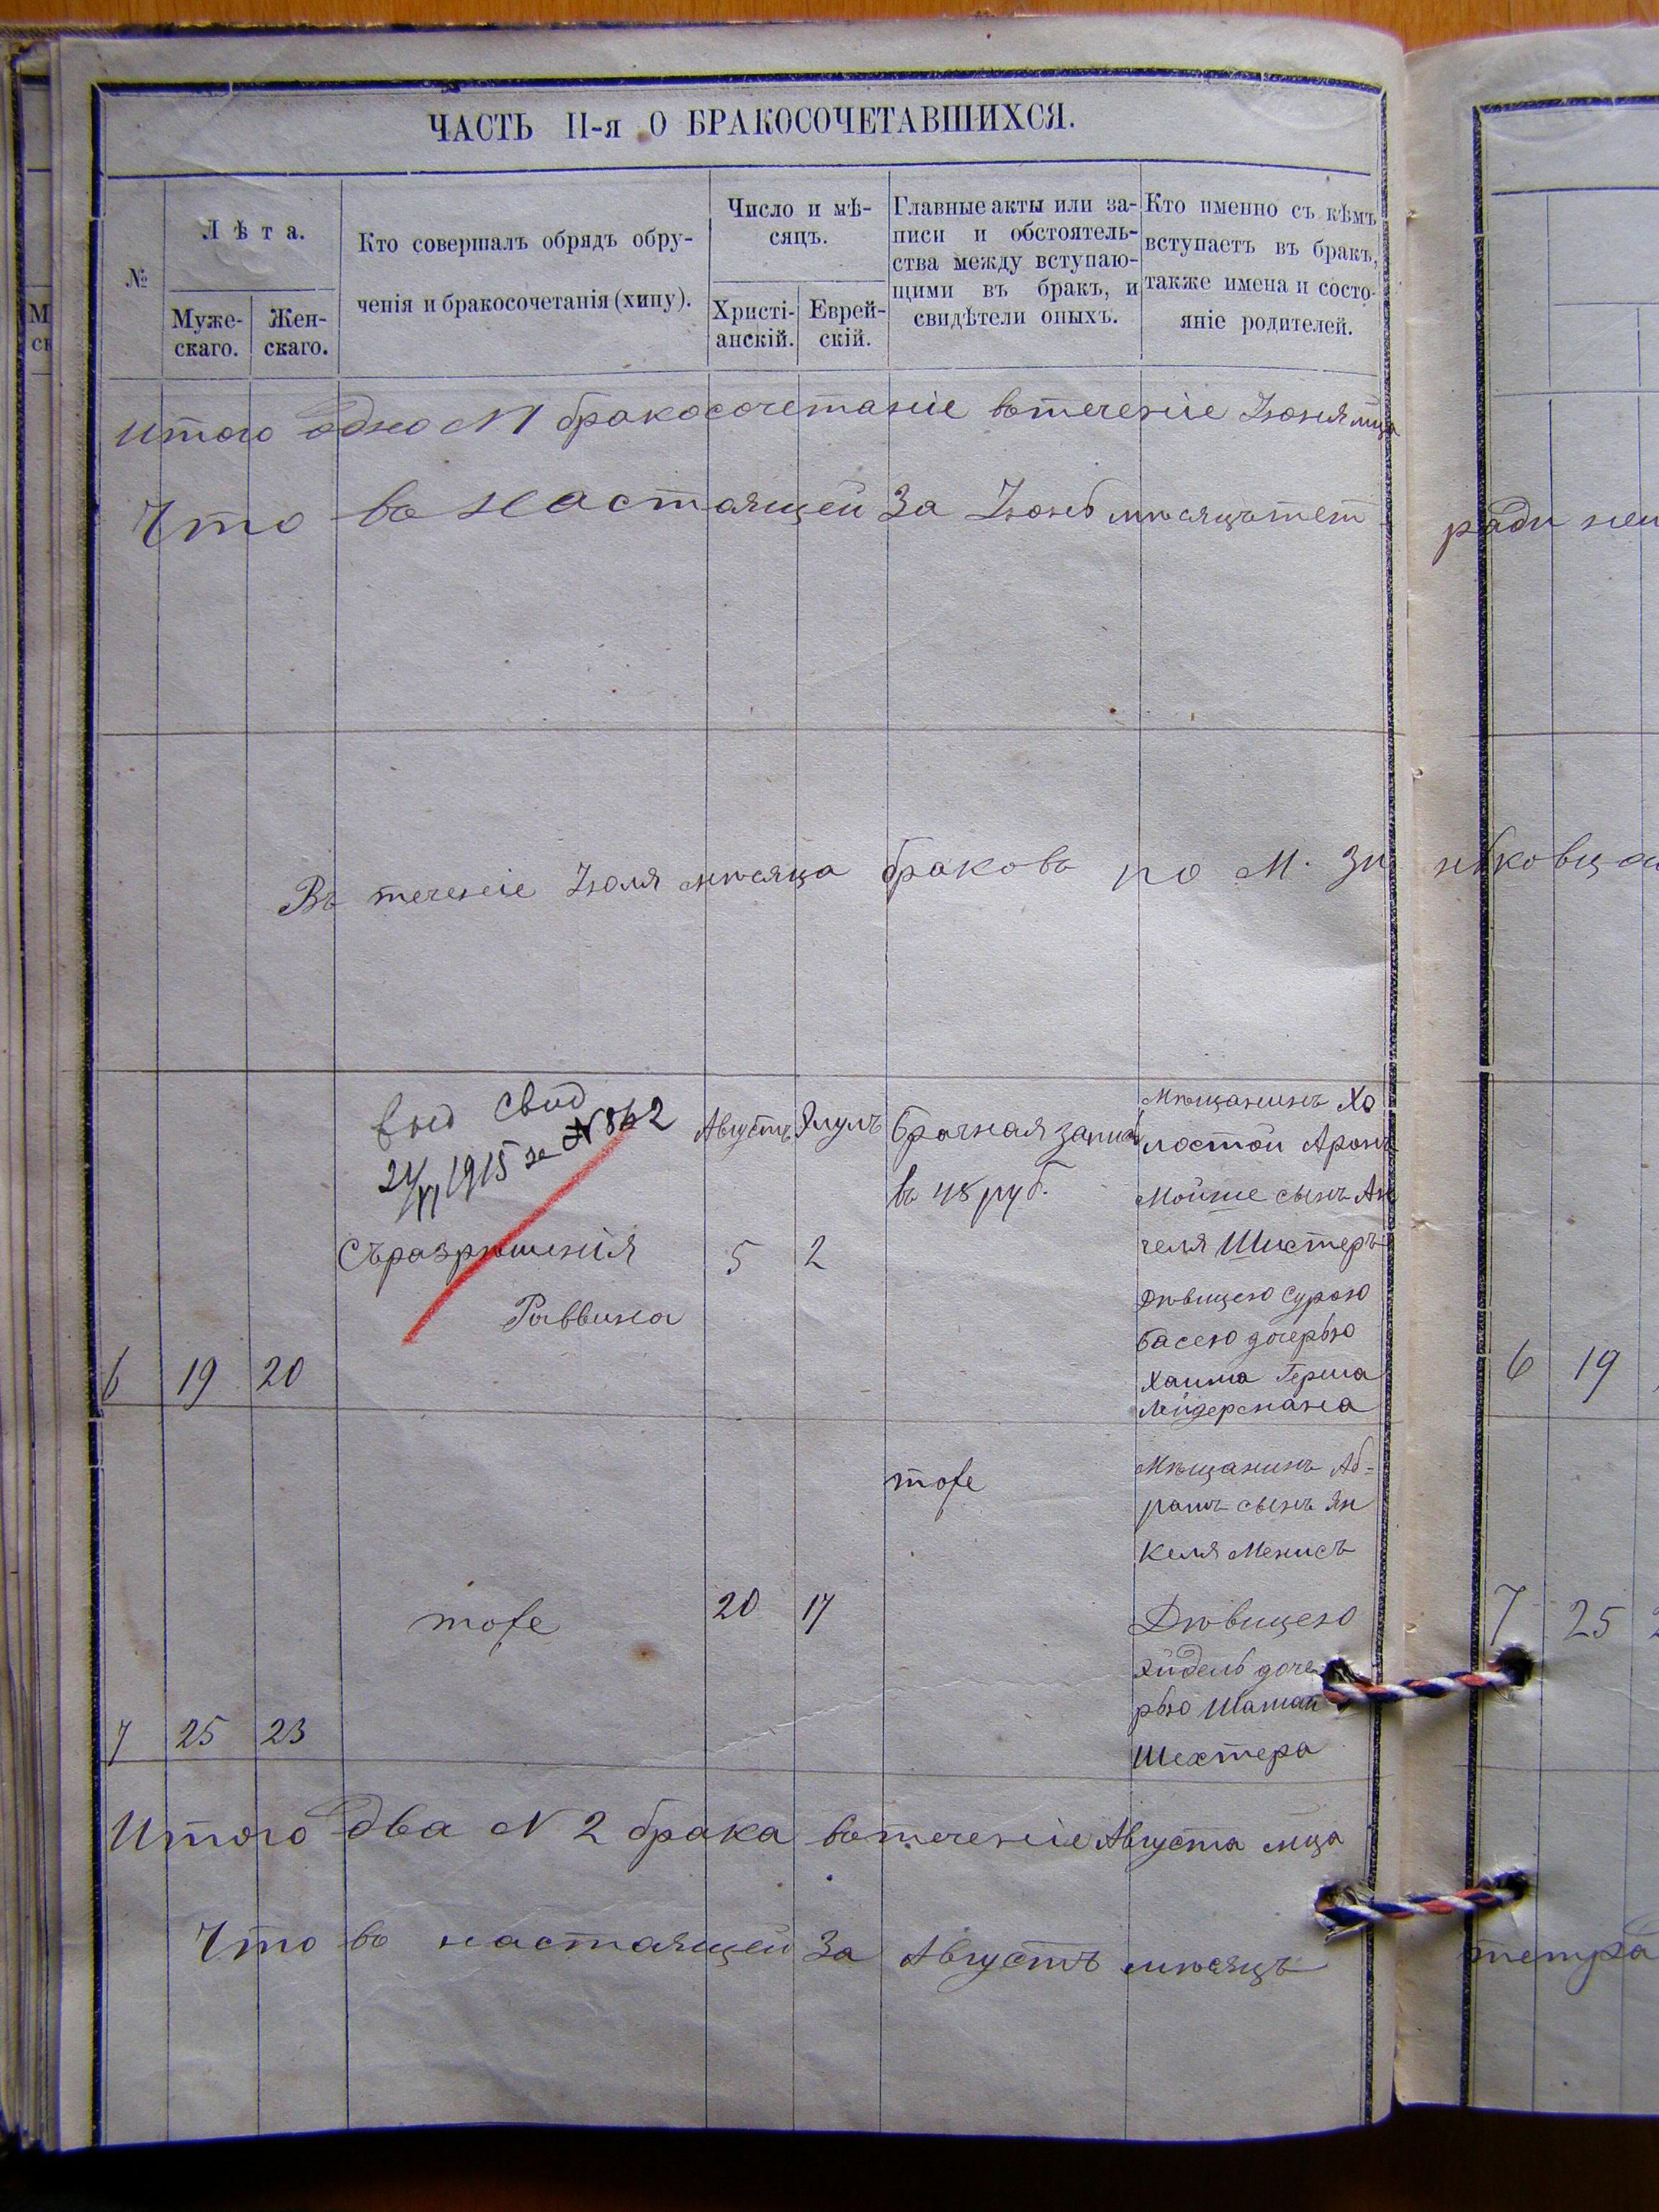 ЧАСТЬ II-я О БРАКОСОЧЕТАВШИХСЯ.
№
Лѣта.
Муже-
скаго.
Жен-
скаго.
Кто совершалъ обрядъ обру-
ченія и бракосочетанія (хипу).
Число и мѣ-
сяцъ.
Христі-
анскій.
Еврей-
скій.
Главные акты или за-
писи и обстоятель-
ства между вступаю-
щими въ бракъ, и
свидѣтели оныхъ.
Кто именно съ кѣмъ
вступаетъ въ бракъ,
также имена и состо-
яніе родителей.
Итого одно N1 бракосочетаніе втеченіе Іюня мца
Что въ настоящей За Іюнь мѣсяцъ тет
ради
Въ теченіе Іюля мѣсяца браковъ по М. Зи
нбковц
выд свид
24/XI 1915 за N 862
Съ разрѣшенія
Раввина
Августъ
5
Элулъ
2
брачная запись
въ 48 руб.
Мѣщанинъ Хо
лостой Аронъ
Мойше сынъ Ан
челя Шистеръ
Дѣвицею Сурою
Басею дочерью
Хаима Герша
Лейдермана
6 19 20
6 19
тоже
20 17
тоже
Мѣщанинъ Аб=
рамъ сынъ Ян
келя Менисъ
Дѣвицею
Эйдель доче
рью Шатай
Шехтера
7 25 23
7 25
Итого два N 2 брака втеченіе Августа мца
Что въ настоящей За Августъ мѣсяцъ
тетра